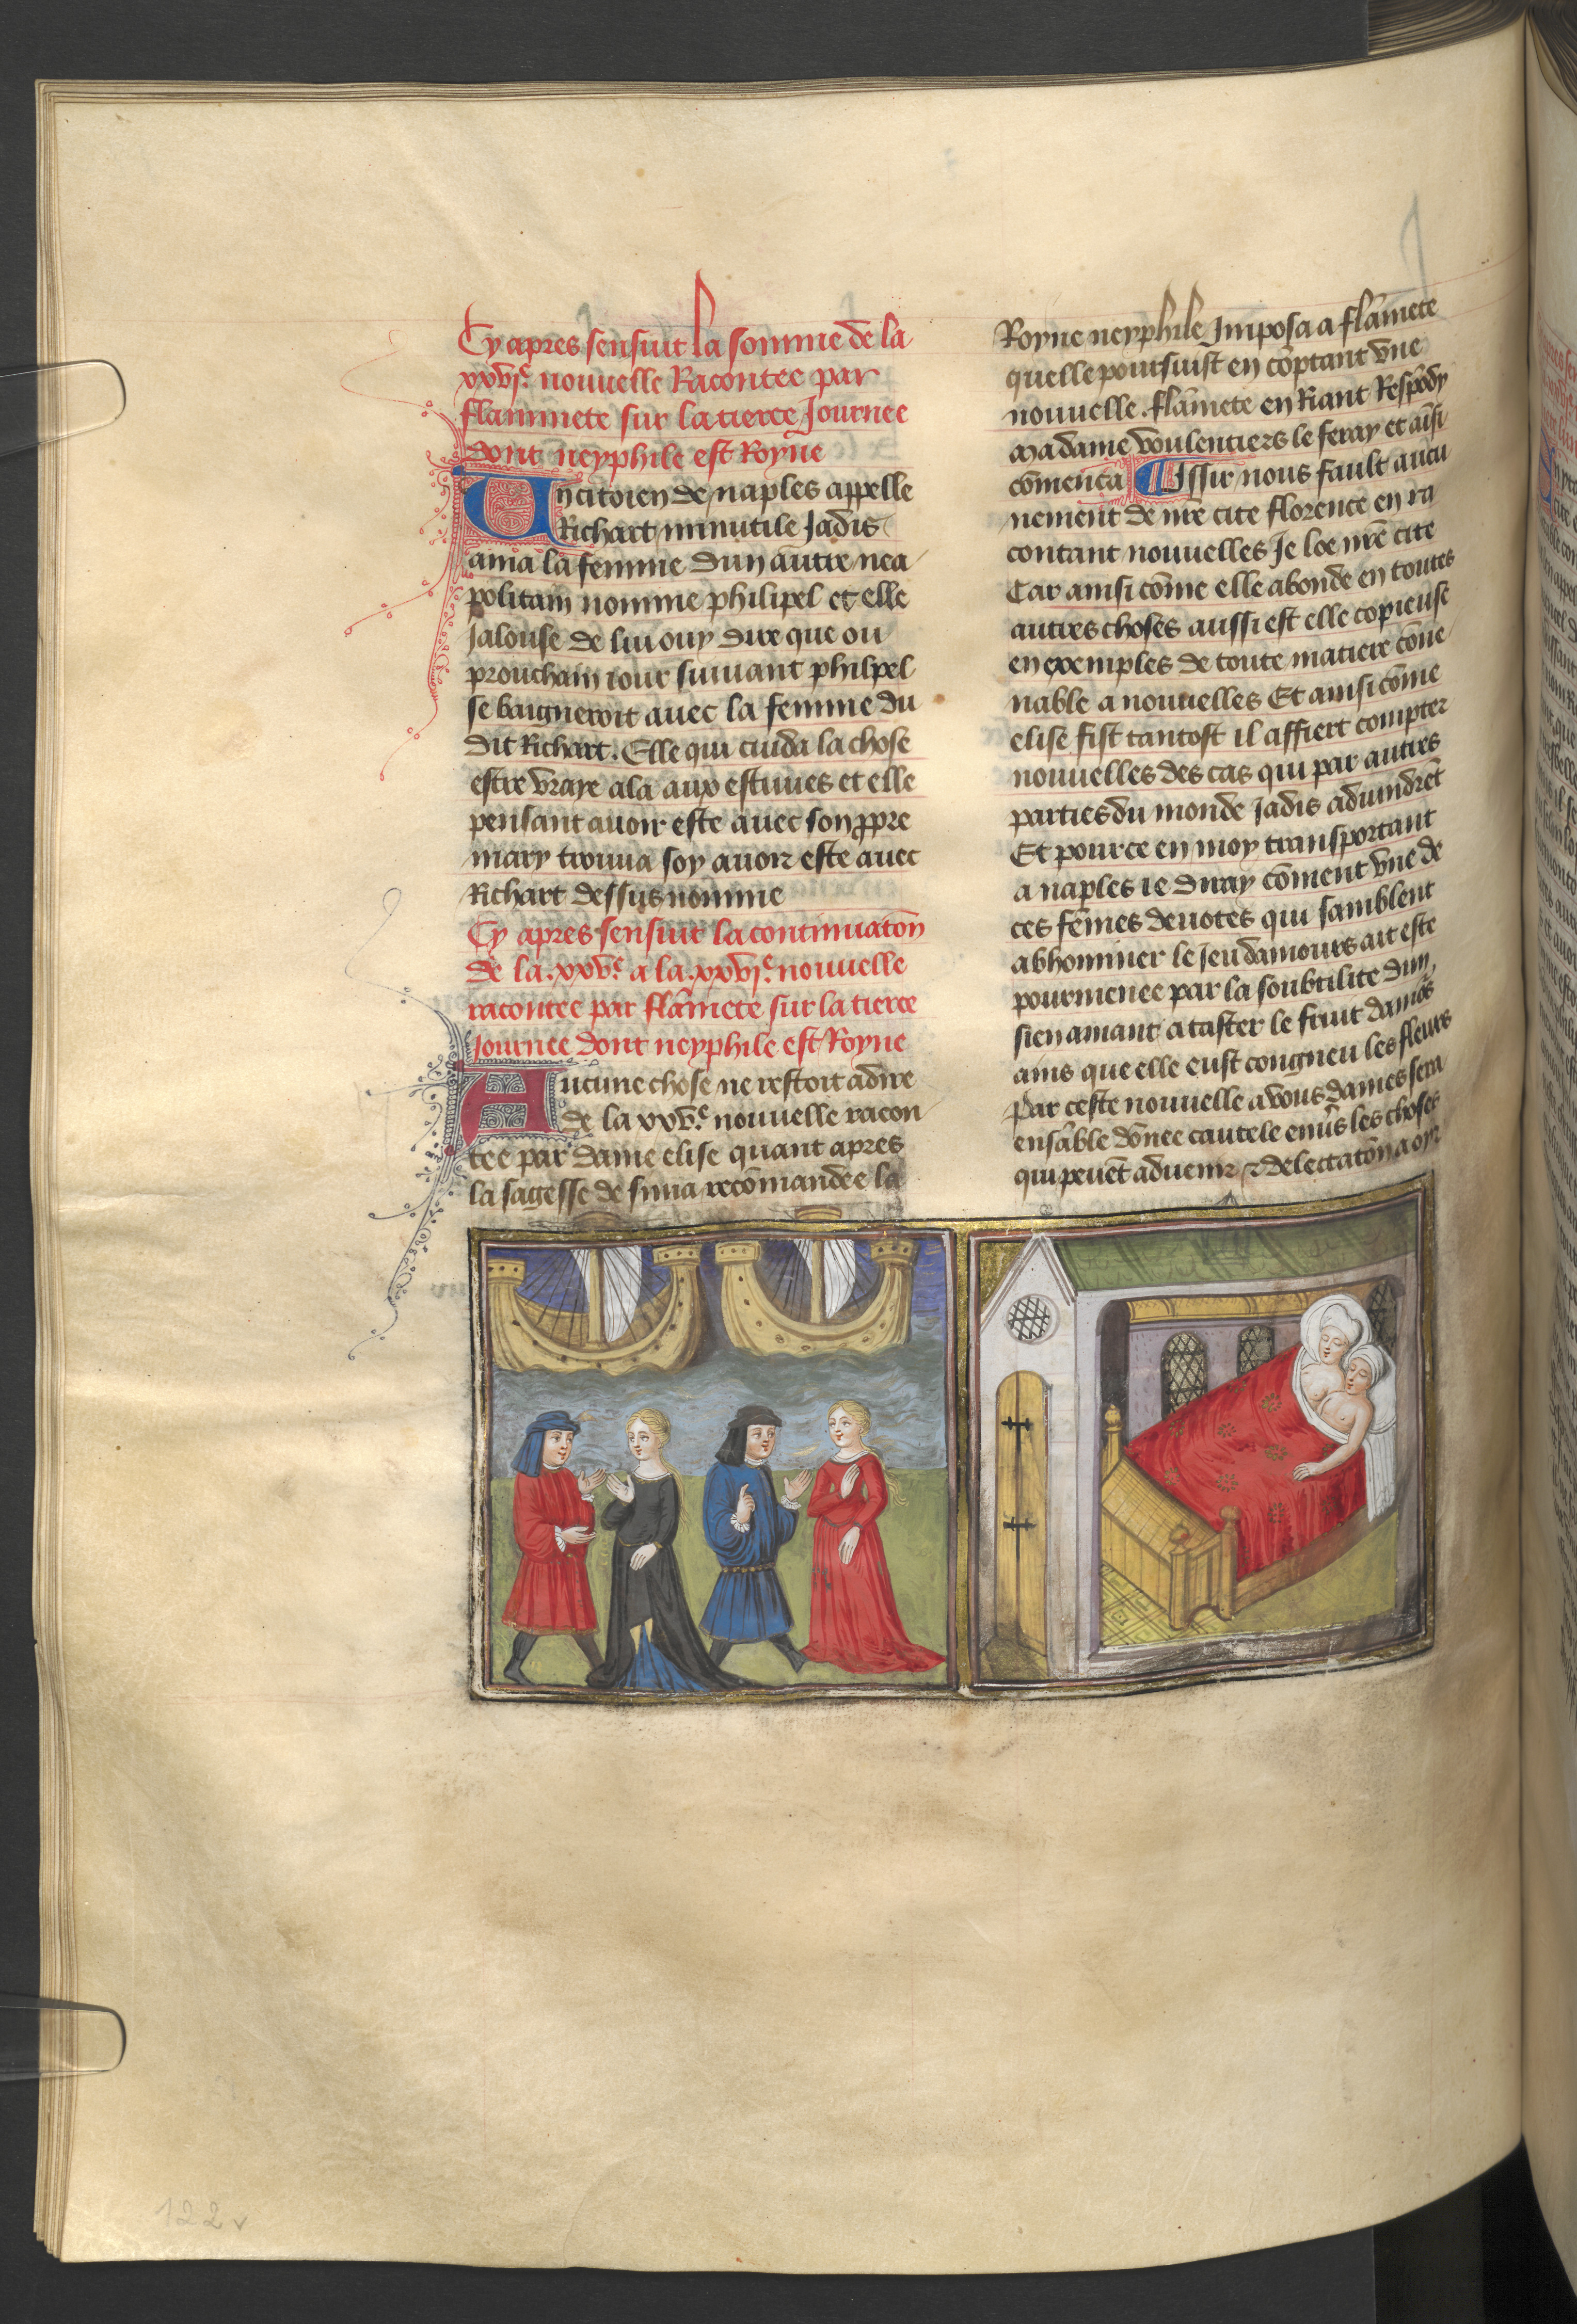 Cy apres sensuit la somme de la
xxvj.e nouuelle Racontee par
flammete sur la tierce Journee
dont neyphile est Royne
Un citoien de naples appelle
Richart minutile Jadis
ama la femme dun autre nea
politain nomme philipel et elle
Jalouse de lui ouy dire que ou
prouchain iour suiuant philpel
se baigneroit auec la femme du
dit Richart. Elle qui cuida la chose
estre vraye ala aux estuues et elle
pensant auoir este auec son ppre
mary trouua soy auoir este auec
Richart dessus nomme
Cy apres sensuit la continuatõn
de la .xxv.e a la .xxvj.e nouuelle
racontee par flãmete sur la tierce
Journee dont neyphile est Royne
Aucune chose ne restoit a dire
de la xxv.e nouuelle racon
tee par dame elise quant apres
la sagesse de sima recõmandee la
Royne neyphile Imposa a flãmete
quelle poursuist en cõptant vne
nouuelle. flãmete en Riant Respõdy
Madame voulentiers le feray et aĩsi
cõmenca Issir nous fault aucu
nement de nr̃e cite florence en ra
contant nouuelles Je loe nr̃e cite
Car ainsi cõme elle abonde en toutes
autres choses aussi est elle copieuse
en exemples de toute matiere cõue
nable a nouuelles Et ainsi cõme
elise fist tantost il affiert compter
nouuelles des cas qui par autres
parties du monde Jadis aduindrẽt
Et pource en moy transportant
a naples ie diray cõment vne de
ces fẽmes deuotes qui samblent
abhominer le Jeu damours ait este
pourmenee par la soubtilite dun
sien amant a taster le fruit damõs
ains que elle eust congneu les fleurs
Par ceste nouuelle a vous dames sera
ensãble dõnee cautele enũs les choses
qui peuẽt aduenir & delectatõn a oyr
122v